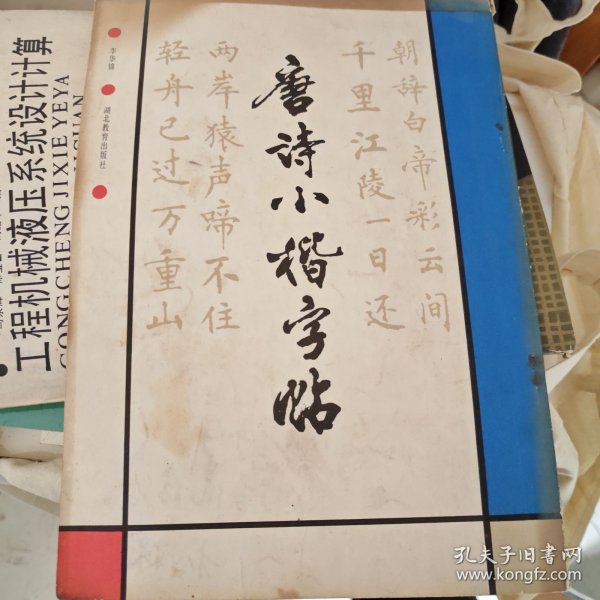 唐诗小楷字帖
朝辞白帝彩云间
千里江陵一日还
两岸猿声啼不住
轻舟已过万重山
李华锦
湖北教育出版社
工程机械液压系统设计计算
GONGCHENG JIXIE YEYA
孔夫子旧书网
www.kongfz.com